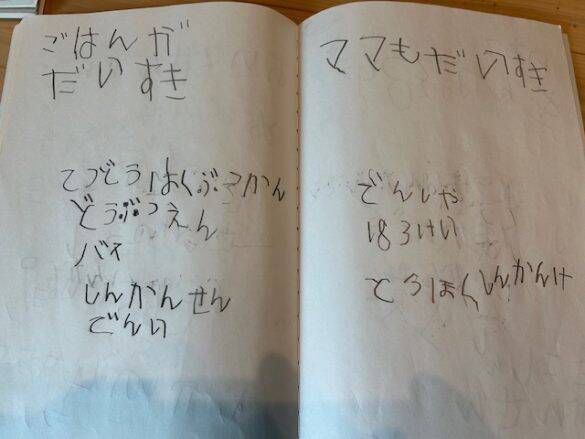 ごはんが
だいすき
てつどうはくぶつかん
どうぶつえん
バス
しんかんせん
でんい
ママもだいすき
でんしゃ
183けい
とうほくしんかんけ